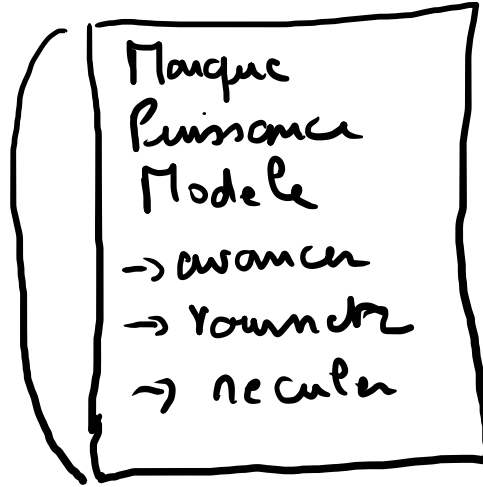 Marque
Puissance
Modele
→ avancer
→
→ reculer